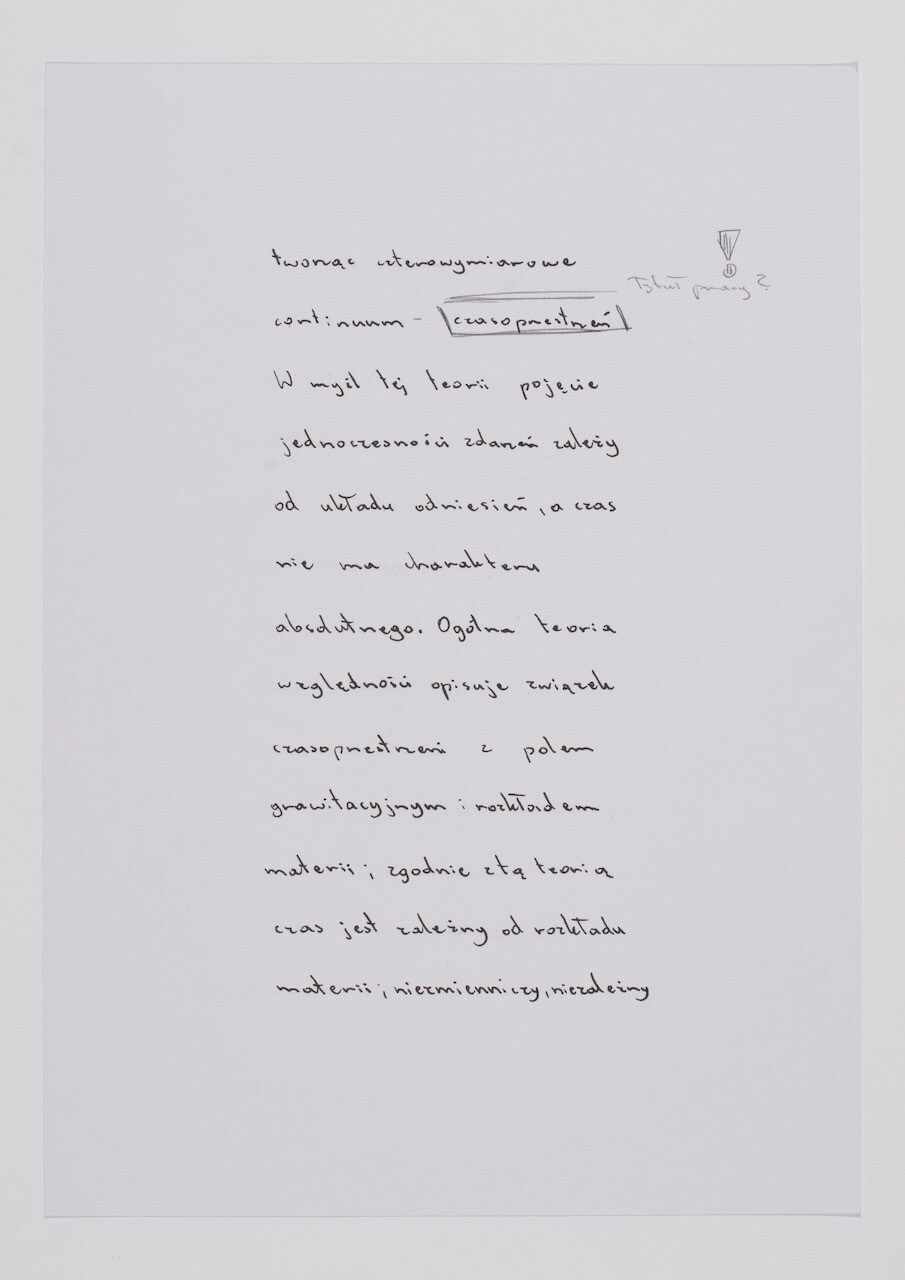 tworząc czterowymiarowe
Tytuł pracy?
continuum - czasoprzestrzeń
W myśl tej teorii pojęcie
jednoczesności zdarzeń zależy
od układu odniesień, a czas
nie ma charakteru
absolutnego. Ogólna teoria
względności opisuje związek
czasoprzestrzeni z polem
grawitacyjnym i rozkładem
materii; zgodnie z tą teorią
czas jest zależny od rozkładu
materii; niezmienniczy, niezależny